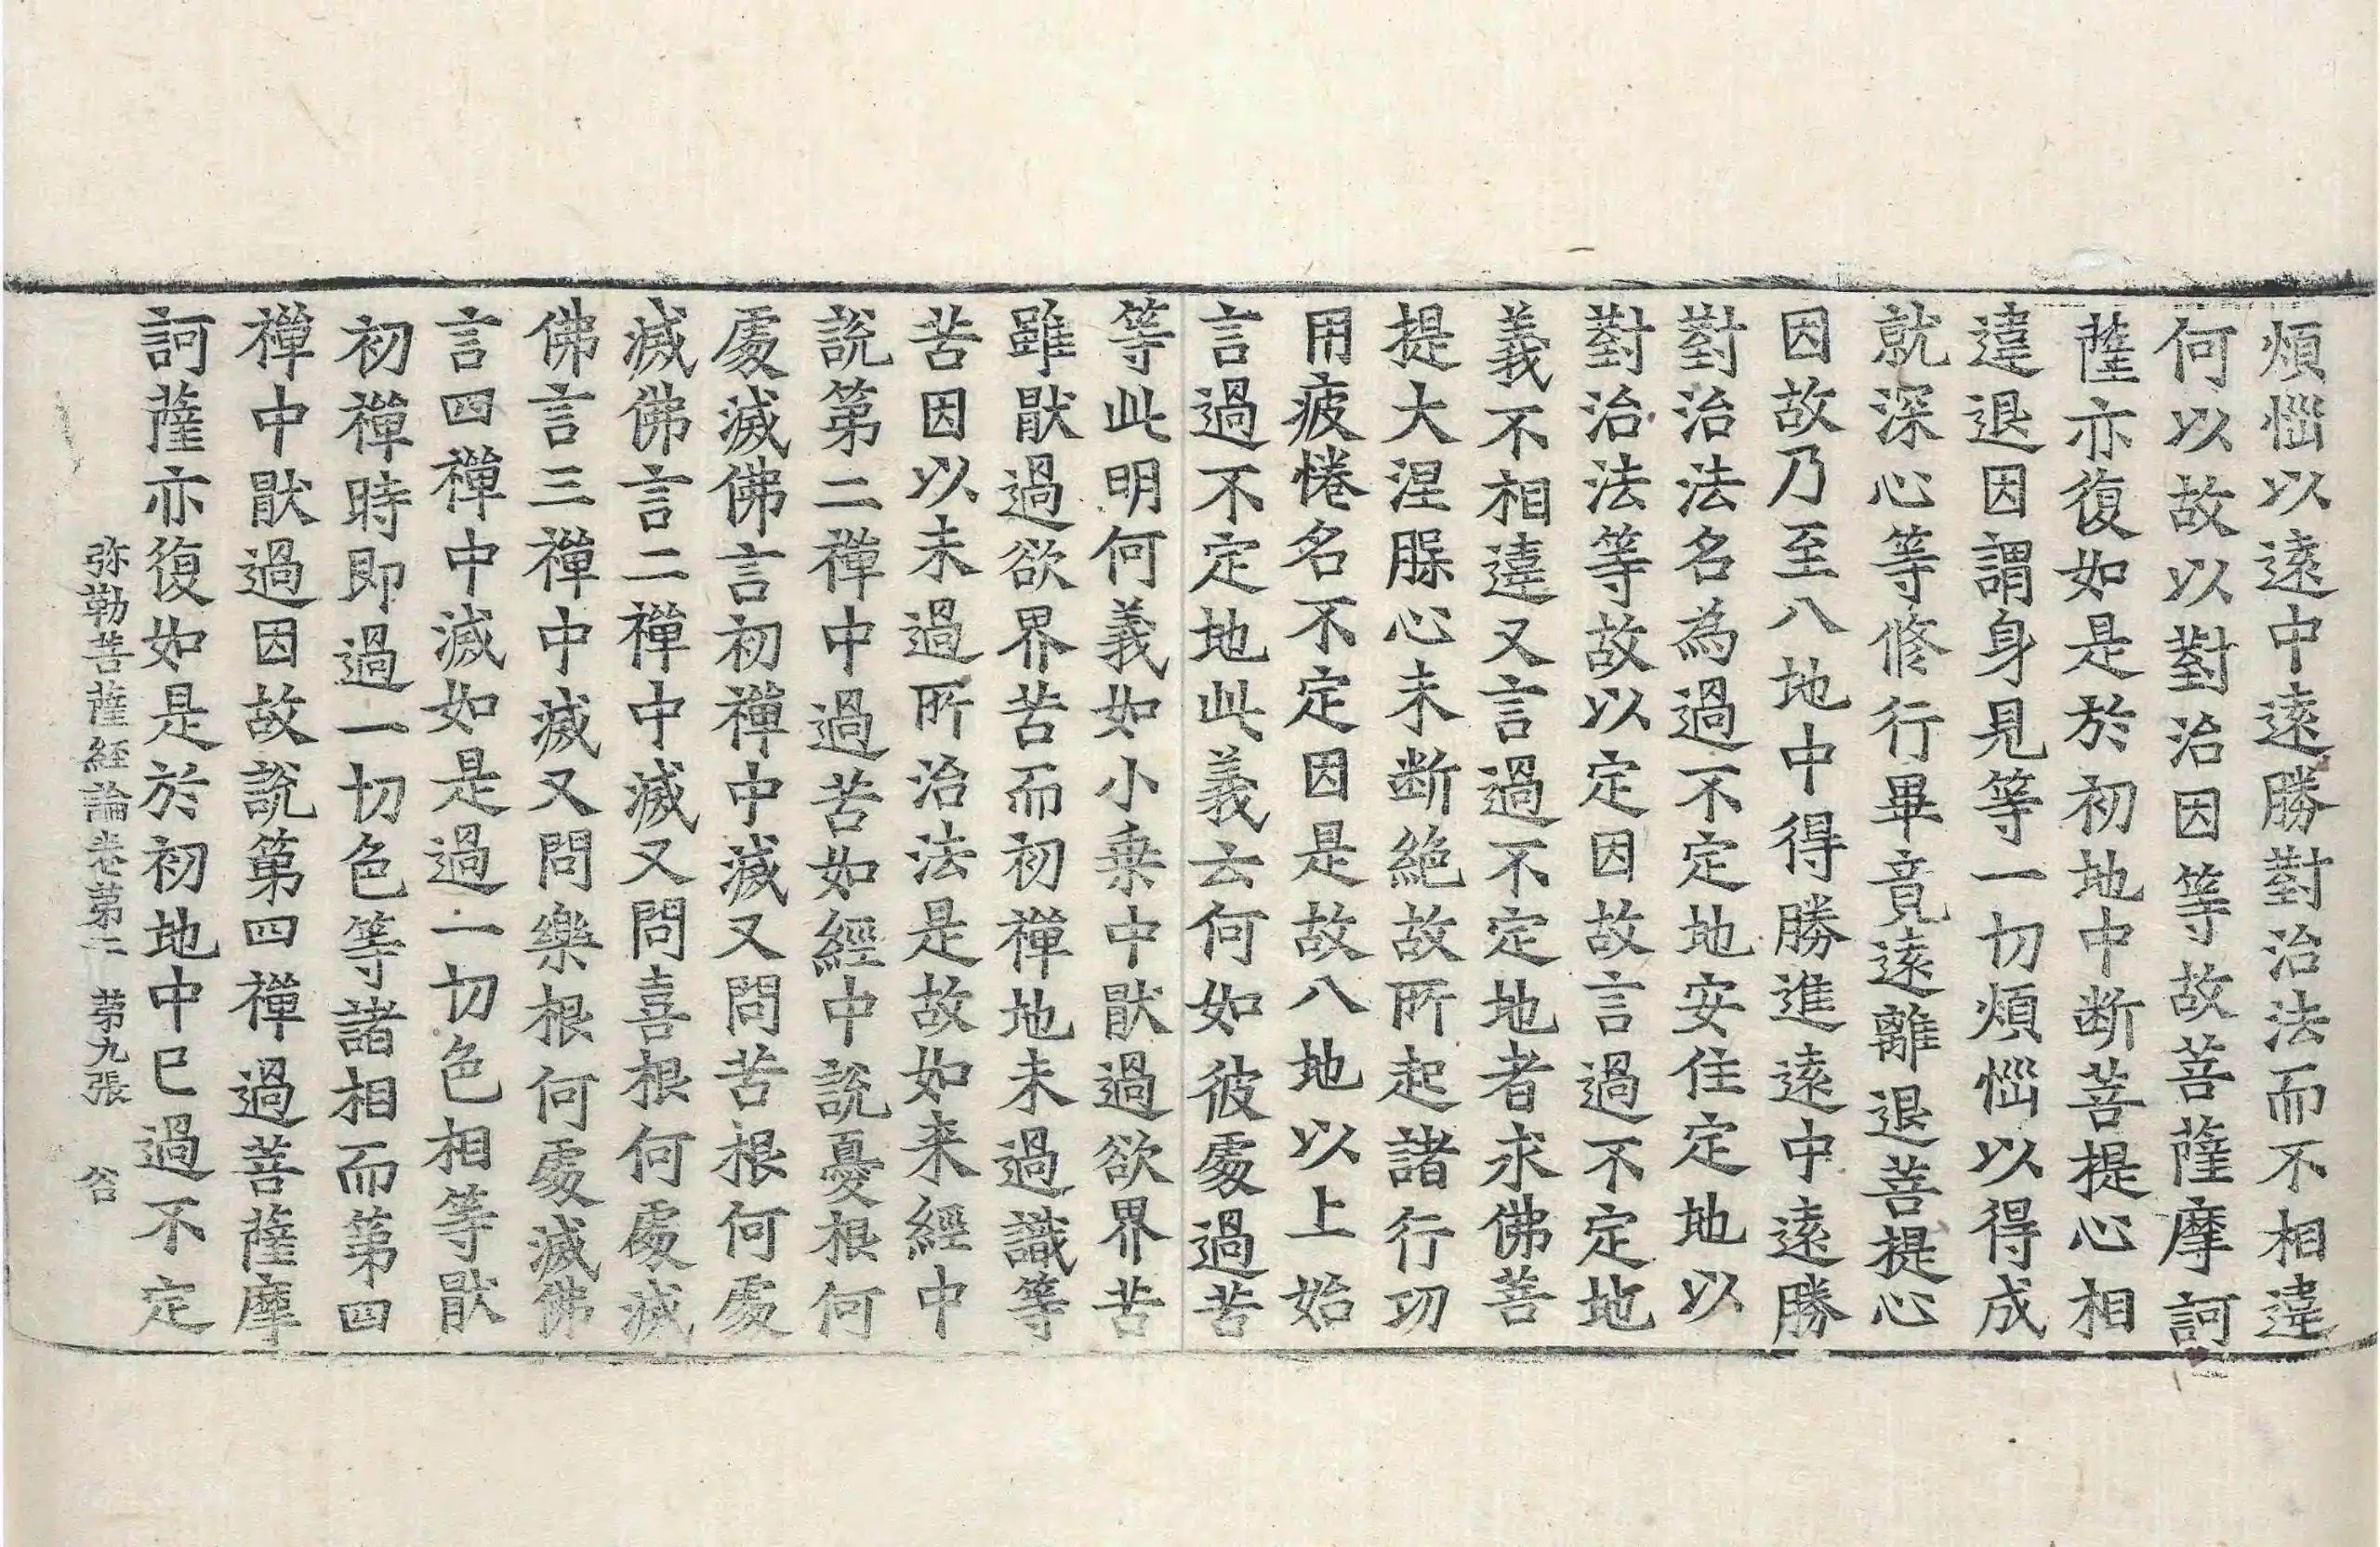 煩惱以遠中遠勝對治法而不相違
何以故以對治因等故菩薩摩訶
薩亦復如是於初地中断菩提心相
違退因謂身見等一切煩惱以得成
就深心等修行畢竟遠離退菩提心
因故乃至八地中得勝進遠中遠勝
對治法名為過不定地安住定地以
對治法等故以定因故言過不定地
義不相違又言過不定地者求佛菩
提大涅槃心未断絶故所起諸行功
用疲惓名不定因是故八地以上始
言過不定地此義云何如彼處過苦
等此明何義如小乗中猒過欲界苦
雖猒過欲界苦而初禪地未過識等
苦因以未過所治法是故如来經中
說第二禪中過苦如經中說憂根何
處滅佛言初禪中滅又問苦根何處
滅佛言二禪中滅又問喜根何處滅
佛言三禪中滅又問樂根何處滅佛
言四禪中滅如是過一切色相等猒
初禪時即過一切色等諸相而第四
禪中猒過因故說第四禪過菩薩摩
訶薩亦復如是於初地中已過不定
弥勒菩薩経論卷第二 第九張 谷